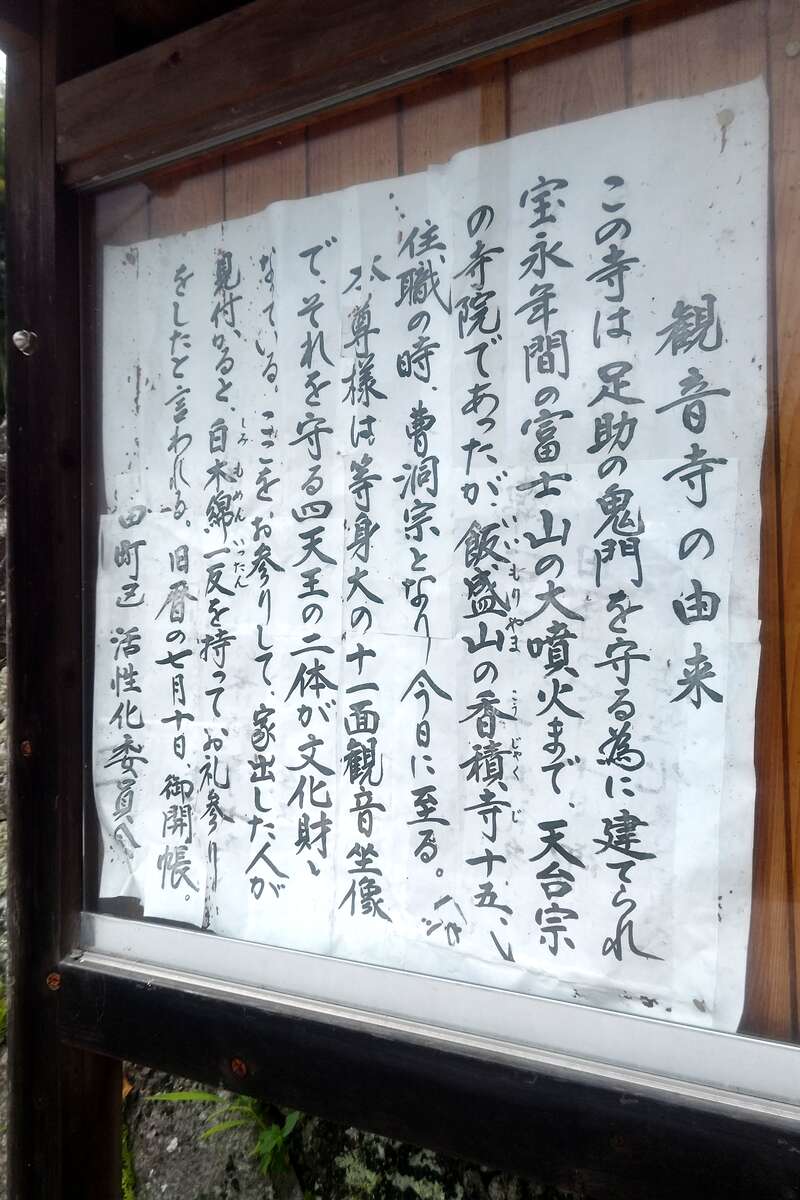 観音寺の由来
この寺は足助の鬼門を守る為に建てられ
宝永年間の富士山の大噴火まで、天台宗
の寺院であったが、飯盛山の香積寺十五、
いいもりやま こうじゃくじ
住職の時、曹洞宗となり今日に至る。
本尊様は等身大の十一面観音坐像
で、それを守る四天王の二体が文化財
なっている。ここをお参りして、家出した人が
見付かると、白木綿一反を持ってお礼参り
しろもめんいったん
をしたと言われる。旧暦の七月十日、御開帳。
田町区 活性化委員